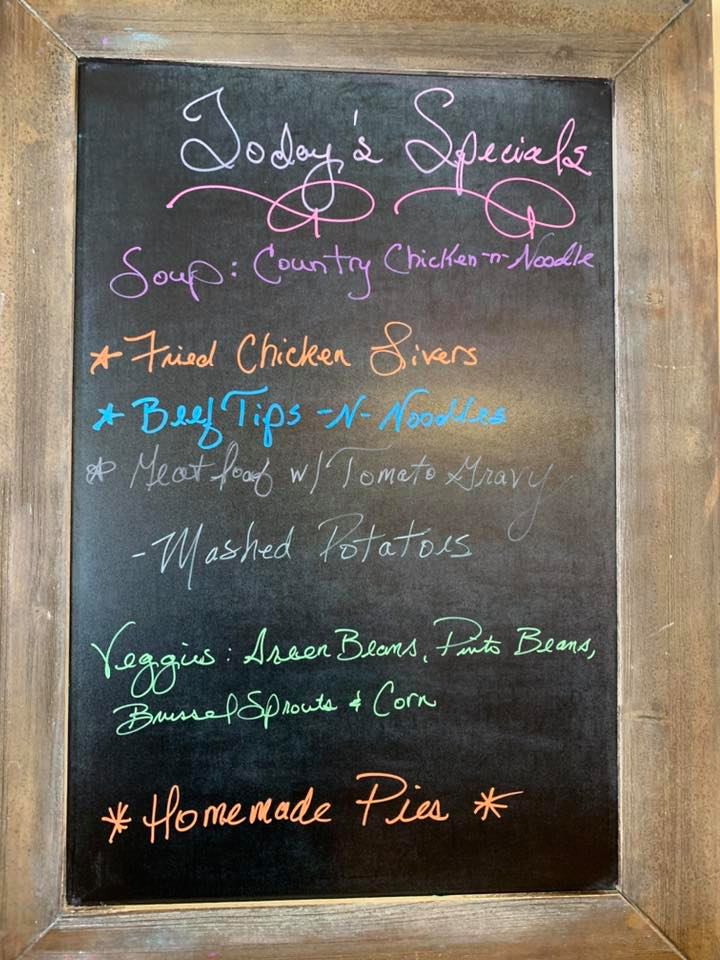 Today's Specials
Soup: Country Chicken-n-Noodle
* Fried Chicken Livers
* Beef Tips -N- Noodles
* Meatloaf w/ Tomato Gravy
- Mashed Potatoes
Veggies: Green Beans, Pinto Beans,
Brussel Sprouts & Corn
* Homemade Pies *